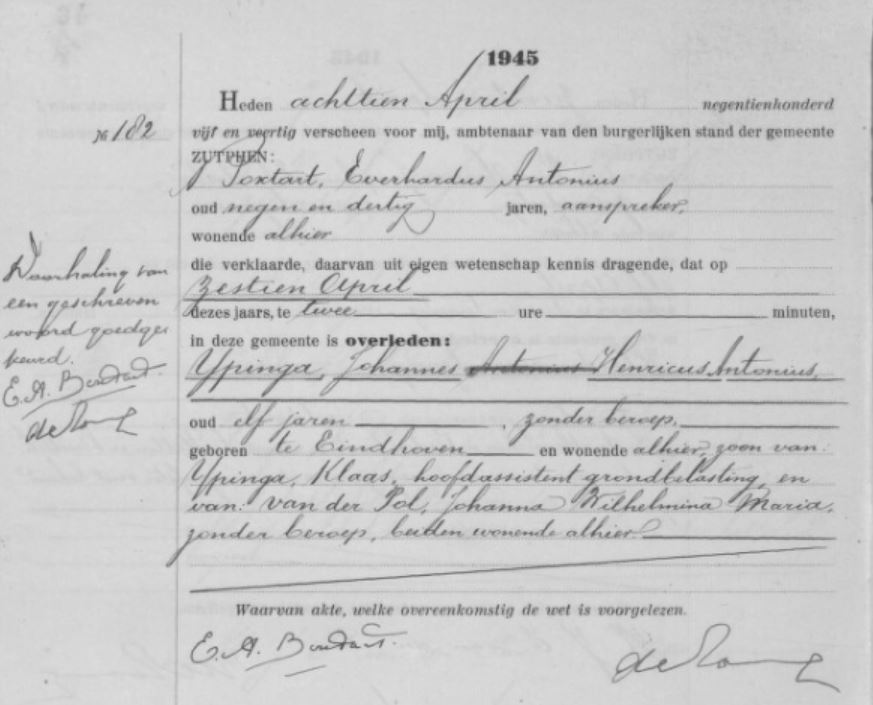 1945
Heden achttien April negentienhonderd
№ 182
vijf en veertig verscheen voor mij, ambtenaar van den burgerlijken stand der gemeente
ZUTPHEN:
Everhardus Antonius
oud negen en dertig jaren, aanspreker,
wonende alhier
die verklaarde, daarvan uit eigen wetenschap kennis dragende, dat op
Zestien April
dezes jaars, te twee ure minuten,
in deze gemeente is overleden:
Ypinga, Johannes Antonius Henricus Antonius,
oud elf jaren, zonder beroep,
geboren te Eindhoven en wonende alhier, zoon van:
Ypinga, Klaas, hoofdassistent grondbelasting, en
van: van der Pol, Johanna Wilhelmina Maria,
zonder beroep, beiden wonende alhier.
Doorhaling van
een geschreven
woord goedge
keurd.
E. A.
Waarvan akte, welke overeenkomstig de wet is voorgelezen.
E. A.